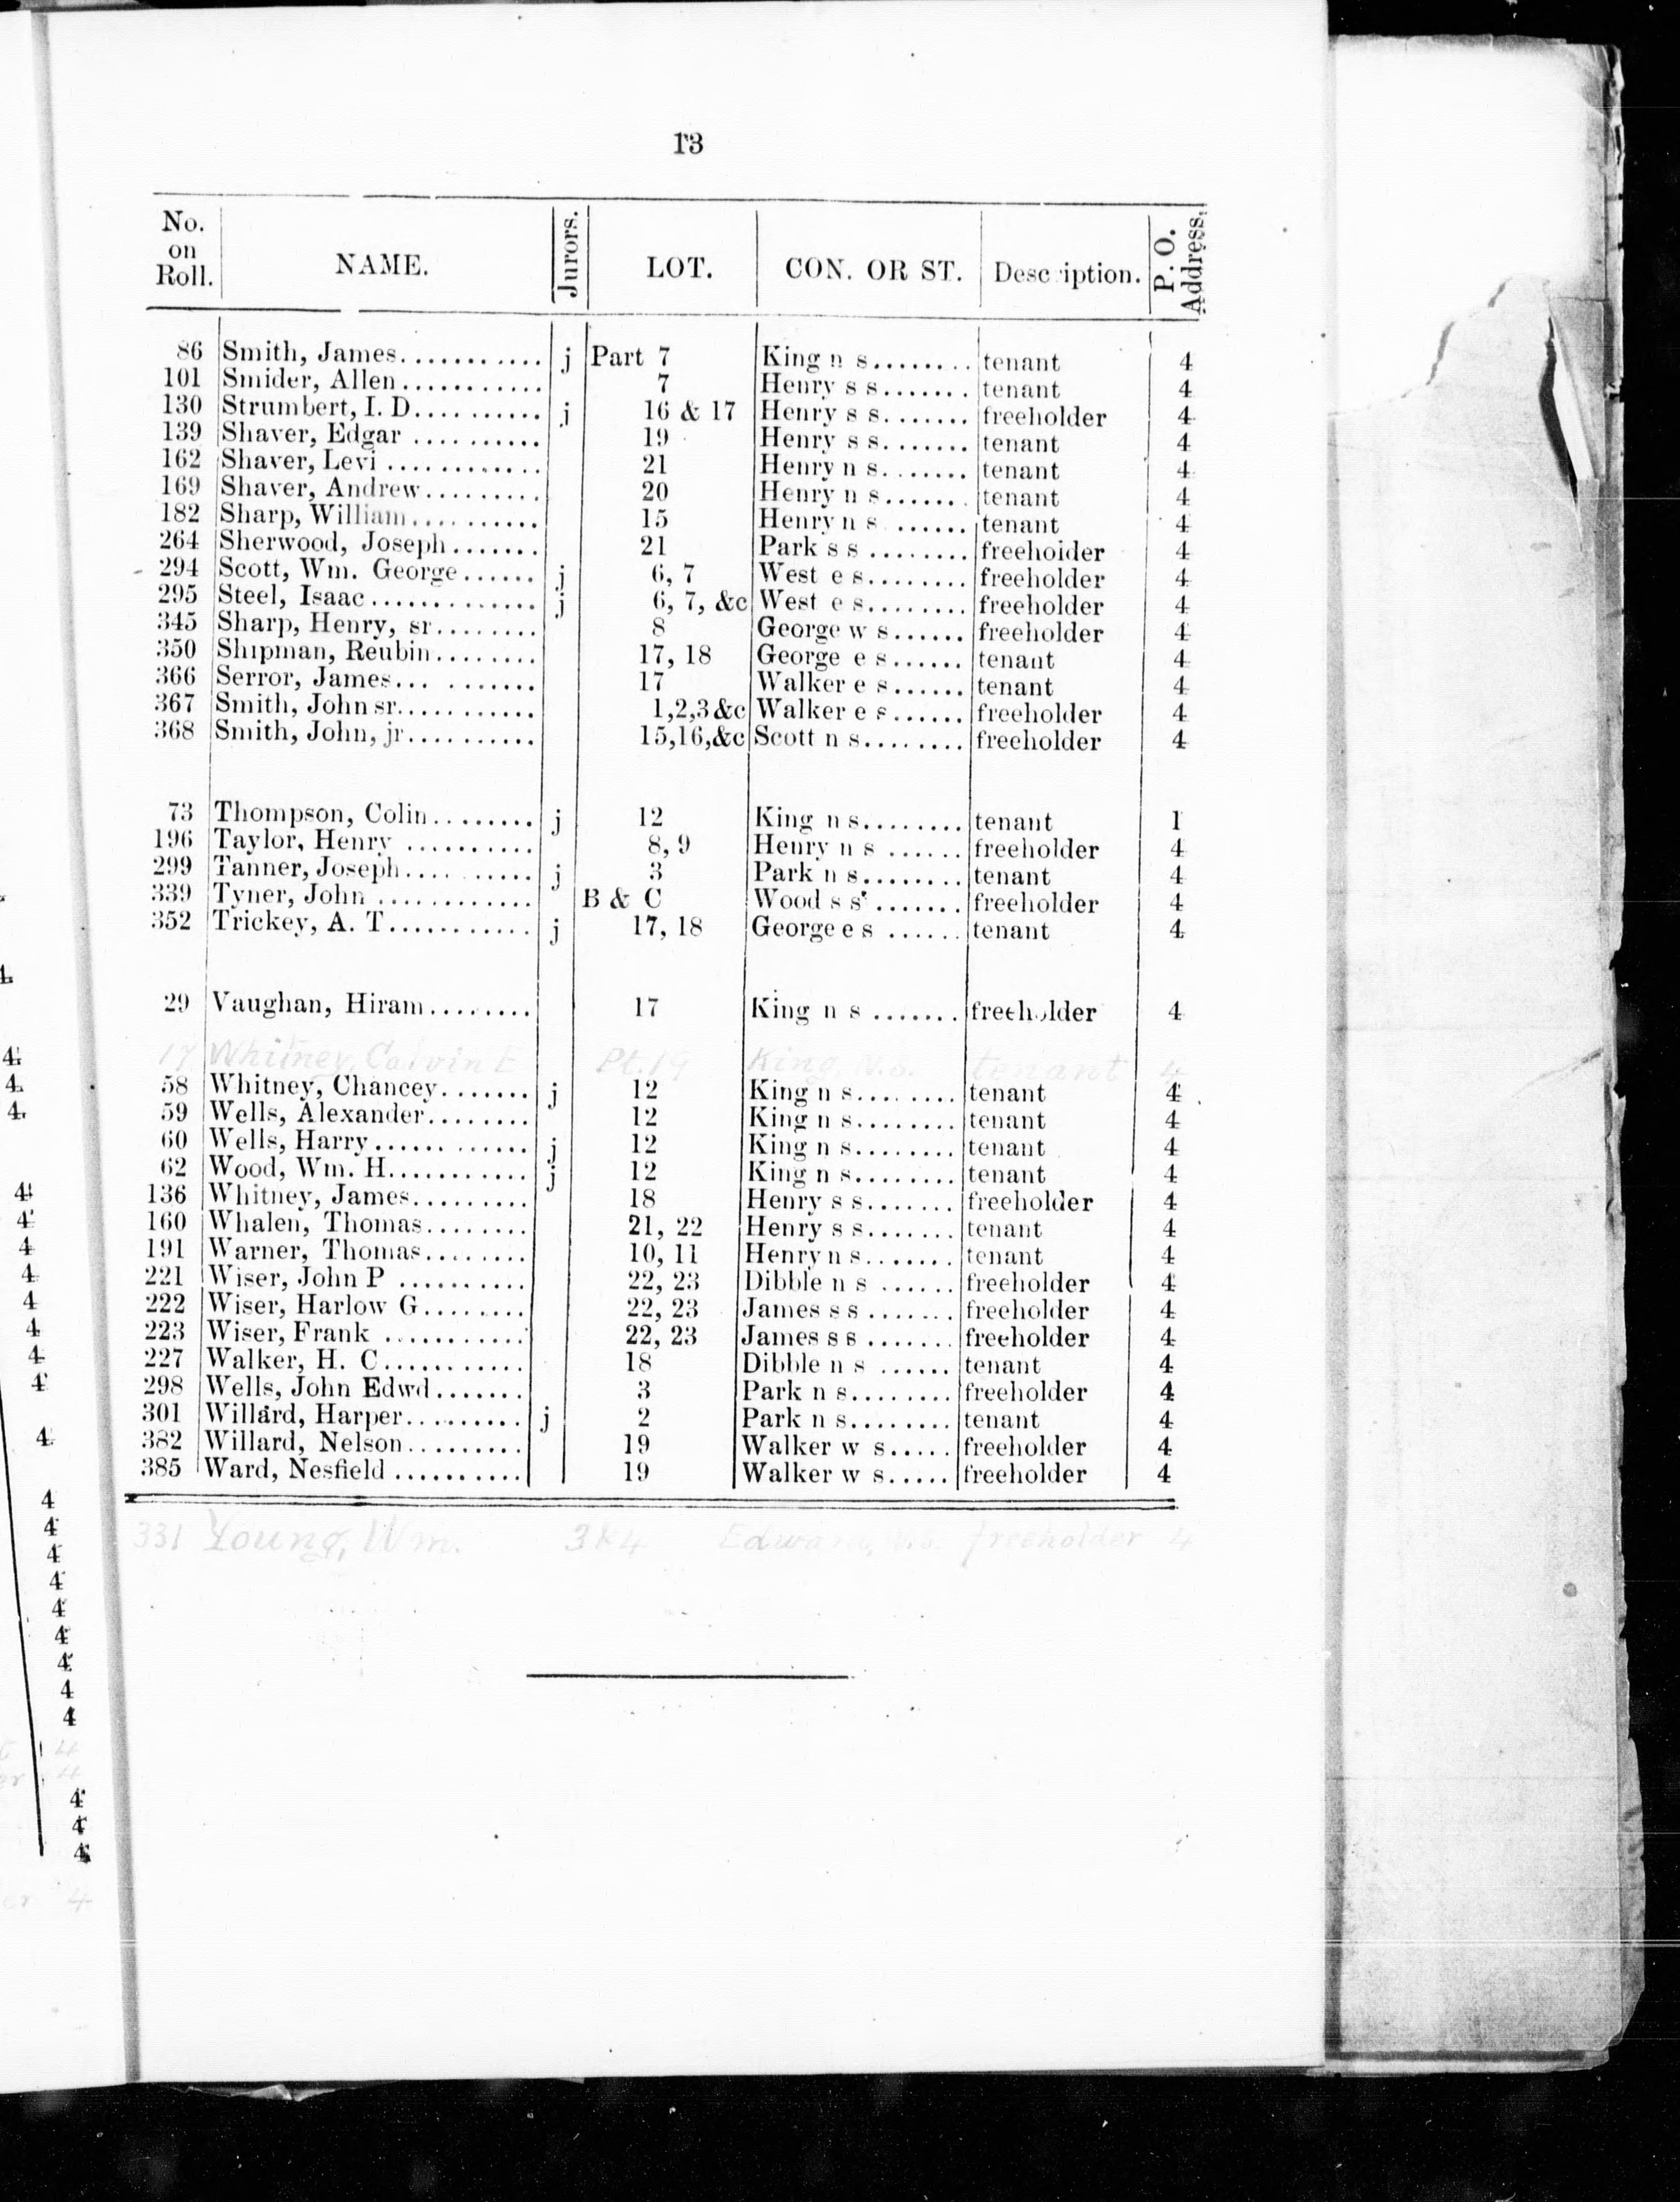 13
No. on Roll. NAME. Jurors. LOT. CON. OR ST. Desc iption. P. O. Address.
86 Smith, James........... j Part 7 King n s........ tenant 4
101 Smider, Allen........... 7 Henry s s....... tenant 4
130 Strumbert, I. D.......... j 16 & 17 Henry s s....... freeholder 4
139 Shaver, Edgar .......... 19 Henry s s....... tenant 4
162 Shaver, Levi ............ 21 Henry n s....... tenant 4
169 Shaver, Andrew......... 20 Henry n s....... tenant 4
182 Sharp, William.......... 15 Henry n s ...... tenant 4
264 Sherwood, Joseph....... 21 Park s s ........ freehoider 4
294 Scott, Wm. George...... j 6, 7 West e s........ freeholder 4
295 Steel, Isaac............. j 6, 7, &c West e s........ freeholder 4
345 Sharp, Henry, sr........ 8 George w s...... freeholder 4
350 Shipman, Reubin........ 17, 18 George e s...... tenant 4
366 Serror, James... ....... 17 Walker e s...... tenant 4
367 Smith, John sr........... 1,2,3&c Walker e s...... freeholder 4
368 Smith, John, jr.......... 15,16,&c Scott n s........ freeholder 4
73 Thompson, Colin........ j 12 King n s........ tenant 1
196 Taylor, Henry .......... 8, 9 Henry n s ...... freeholder 4
299 Tanner, Joseph.......... j 3 Park n s........ tenant 4
339 Tyner, John ............ B & C Wood s s ....... freeholder 4
352 Trickey, A. T........... j 17, 18 George e s ...... tenant 4
29 Vaughan, Hiram........ 17 King n s ....... freeholder 4
17 Whitney, Calvin E Pt. 19 King, N.s. tenant 4
58 Whitney, Chancey....... j 12 King n s........ tenant 4
59 Wells, Alexander........ 12 King n s........ tenant 4
60 Wells, Harry...... ...... j 12 King n s........ tenant 4
62 Wood, Wm. H........... j 12 King n s........ tenant 4
136 Whitney, James......... 18 Henry s s....... freeholder 4
160 Whalen, Thomas........ 21, 22 Henry s s....... tenant 4
191 Warner, Thomas........ 10, 11 Henry n s....... tenant 4
221 Wiser, John P .......... 22, 23 Dibble n s ...... freeholder 4
222 Wiser, Harlow G........ 22, 23 James s s ....... freeholder 4
223 Wiser, Frank ........... 22, 23 James s s ....... freeholder 4
227 Walker, H. C........... 18 Dibble n s ...... tenant 4
298 Wells, John Edwd....... 3 Park n s........ freeholder 4
301 Willard, Harper......... j 2 Park n s........ tenant 4
382 Willard, Nelson......... 19 Walker w s..... freeholder 4
385 Ward, Nesfield .......... 19 Walker w s..... freeholder 4
331 Young, Wm. 3 & 4 Edward, freeholder 4